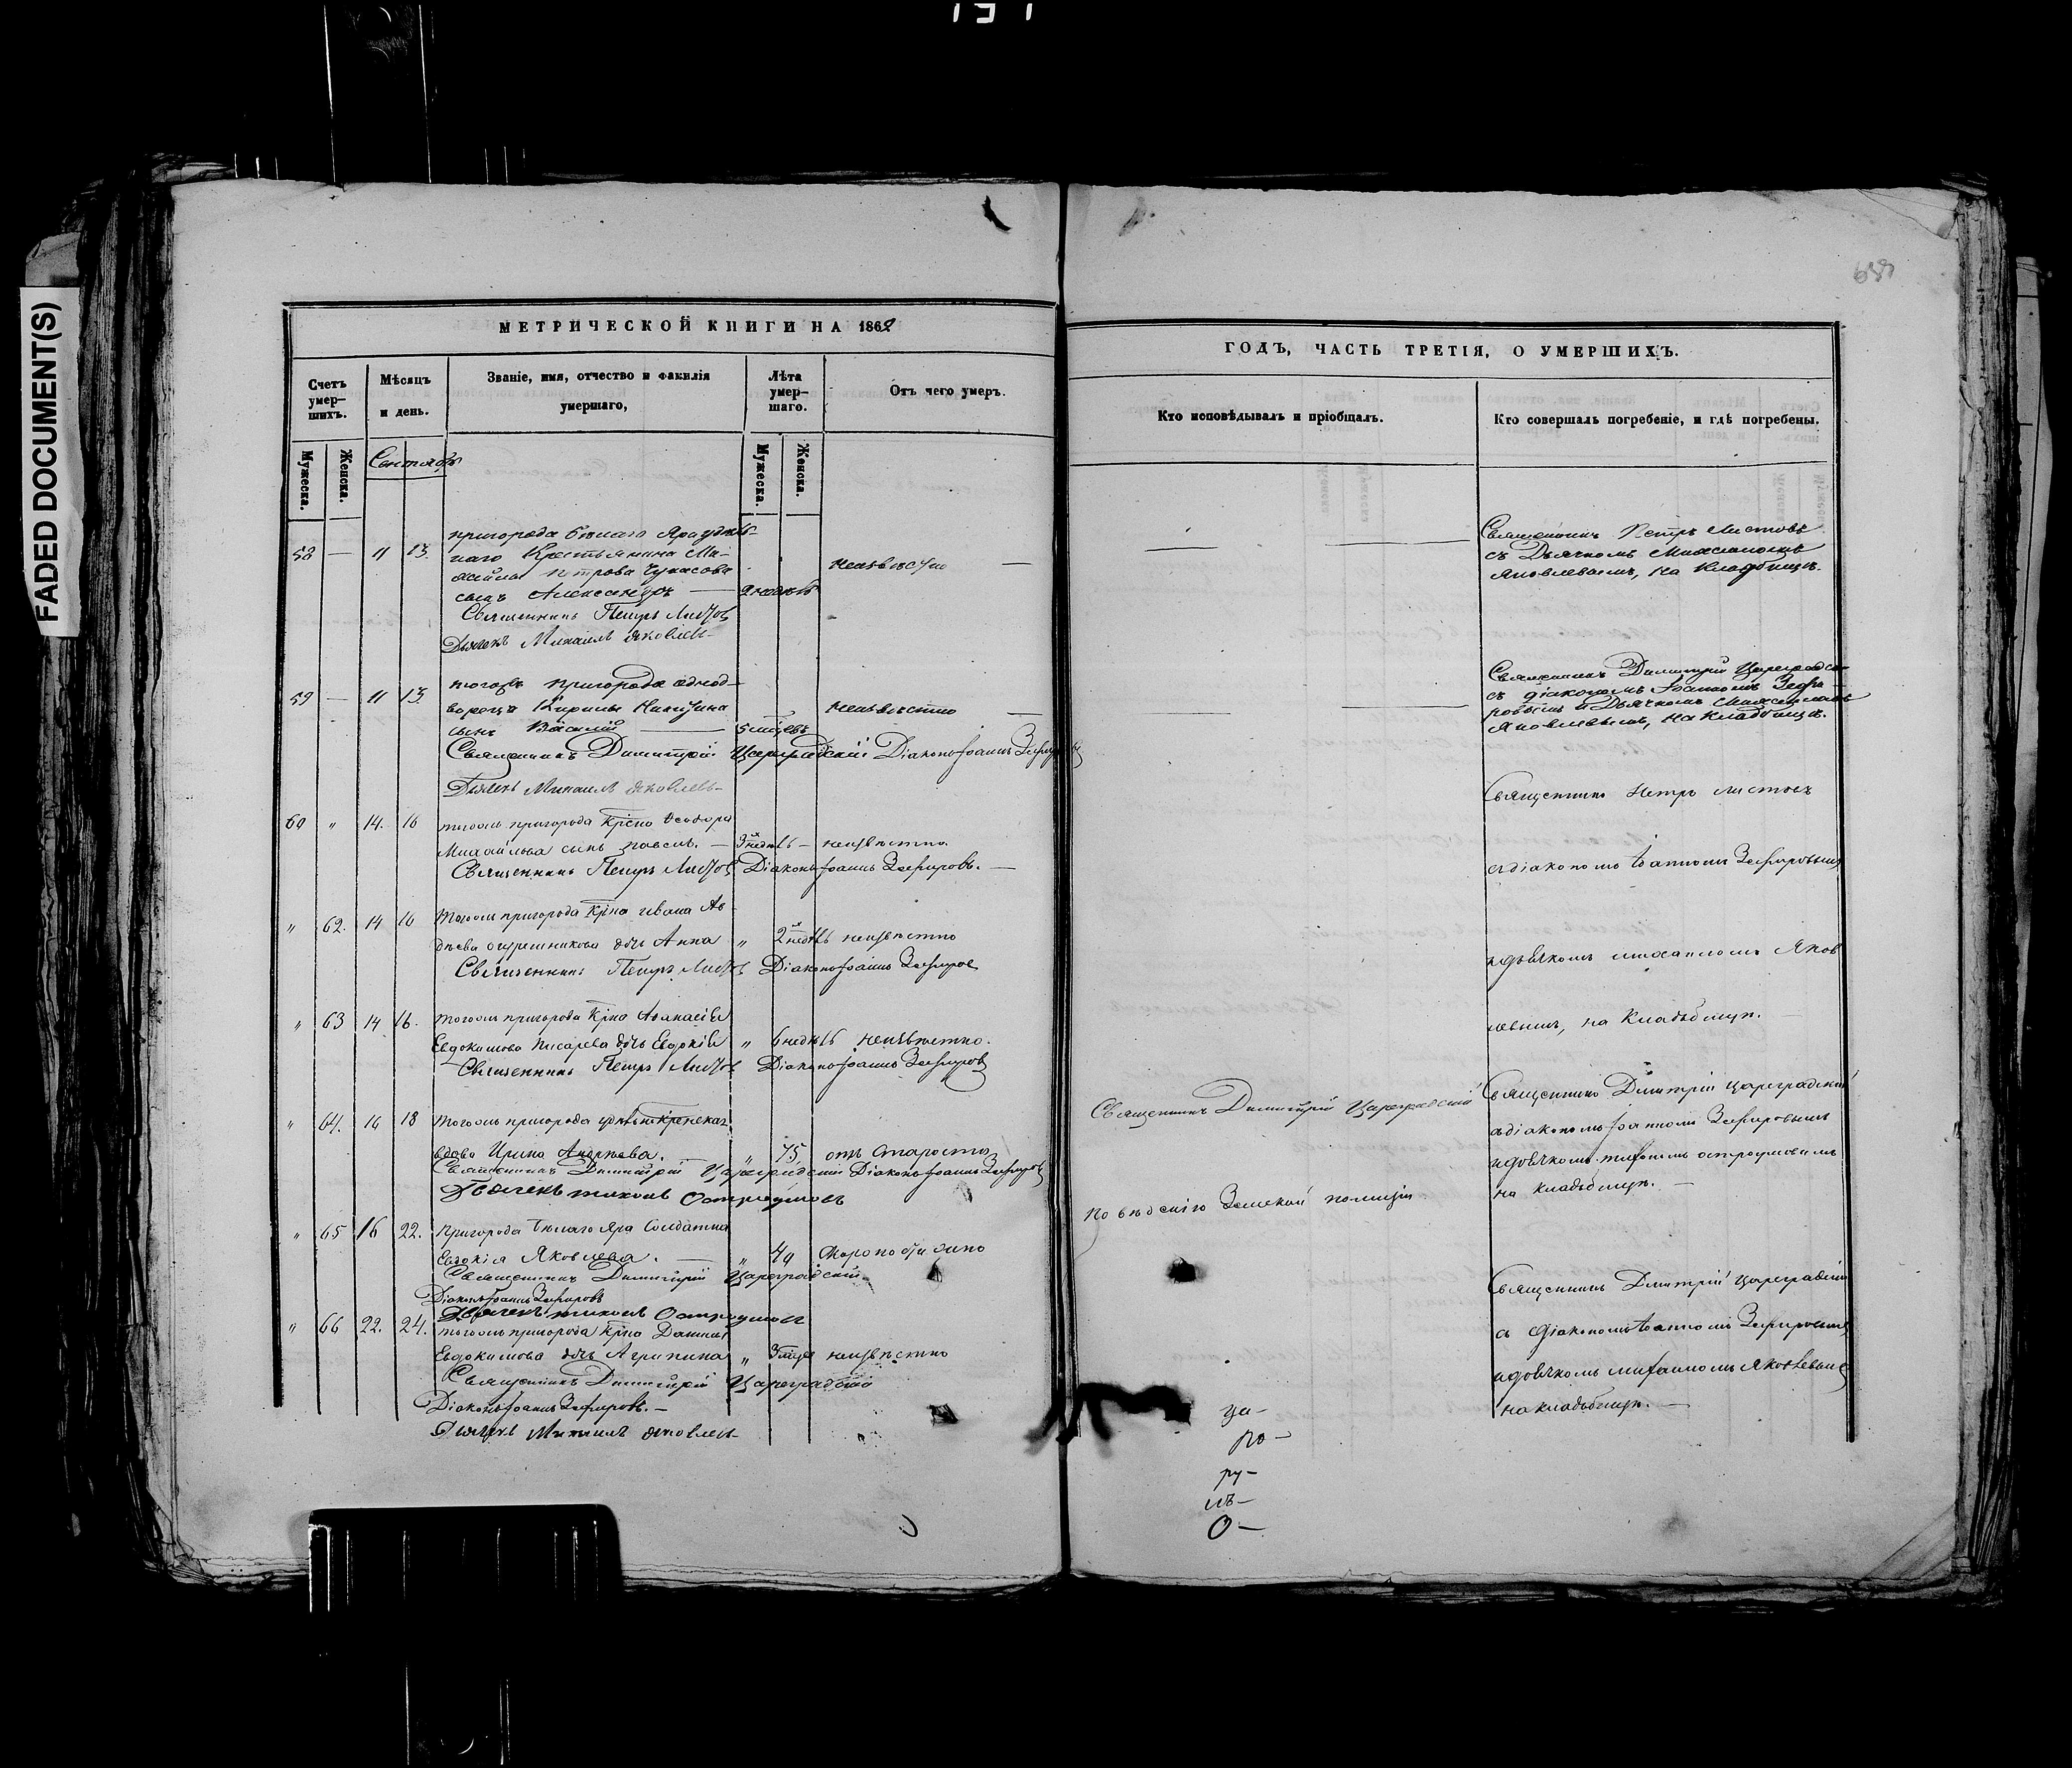 FADED DOCUMENT(S)
МЕТРИЧЕСКОЙ КНИГИ НА 1862
ГОДЪ, ЧАСТЬ ТРЕТІЯ, О УМЕРШИХЪ.
Счетъ умер-шихъ.
Мѣсяцъ и день.
Званіе, имя, отчество и фамилія умершаго,
Лѣта умер-шаго.
Отъ чего умеръ.
Кто исповѣдывалъ и пріобщалъ.
Кто совершалъ погребеніе, и гдѣ погребены.
Мужеска.
Женска.
Сентябрь
Мужеска.
Женска.
пригорода Бѣлаго Яра удѣль-
58 — 11 13. наго Крестьянина Ми-
хаила Петрова неизвѣстно —
сынъ Александръ — 2 недѣль
Священникъ Петръ Листовъ
Дьячекъ Михаилъ Яковлевъ
Священникъ Петръ Листовъ
съ Дьячкомъ Михаиломъ
Яковлевымъ, на Кладбищѣ.
тогожъ пригорода однод-
59 — 11 13. ворца Кирилы Никитина неизвѣстно
сынъ Василій — 5 мѣ
Священникъ Димитрій Цареградскій Діаконъ Іоаннъ Зефировъ
Дьячекъ Михаилъ Яковлевъ
Священникъ Димитрій
съ діакономъ Іоанномъ Зефи-
ровымъ и Дьячкомъ Михаиломъ
Яковлевымъ, на Кладбищѣ.
60 " 14. 16 тогожъ пригорода Крѣна Ѳеодора
Михайлова сынъ Павелъ. — 3 недѣль — неизвѣстно
Священникъ Петръ Листовъ Діаконъ Іоаннъ Зефировъ. —
Священникъ Петръ Листовъ
съ діакономъ Іоанномъ Зефировымъ
" 62. 14 16 тогожъ пригорода Крна Ивана Ав-
дѣева дочь Анна " 2 недѣль неизвѣстно
Священникъ Петръ Листовъ Діаконъ Іоаннъ Зефировъ
и дьячкомъ Михаиломъ Яков
" 63 14 16. тогожъ пригорода Крна Аѳанасія
Евдокимова Писарева дочь Евдокія " 6 недѣль неизвѣстно.
Священникъ Петръ Листовъ Діаконъ Іоаннъ Зефировъ
левымъ, на Кладбищѣ. —
" 64. 16 18 тогожъ пригорода
вдова Ирина Андреева. " 75 отъ старости
Священникъ Димитрій Цареградскій Діаконъ Іоаннъ Зефировъ
Дьячекъ Тихонъ Остроумовъ
Священникъ Димитрій Цареградскій
Священникъ Димитрій Цареградскій
съ діакономъ Іоанномъ Зефировымъ
и дьячкомъ Тихономъ Остроумовымъ
на кладбищѣ. —
" 65 16 22. пригорода Бѣлаго Яра Солдатка
Евдокія Яковлева. — " 40 скоропостижно
Священникъ Димитрій Цареградскій
Діаконъ Іоаннъ Зефировъ
Дьячекъ Тихонъ Остроумовъ
Земской полиціи
Священникъ Димитрій Цареградскій
съ Діакономъ Іоанномъ Зефировымъ
и дьячкомъ Михаиломъ Яковлевымъ
на кладбищѣ. —
" 66 22. 24. тогожъ пригорода Крна
Евдокимова дочь Агрипина " неизвѣстно
Священникъ Димитрій Цареградскій
Діаконъ Іоаннъ Зефировъ. —
Дьячекъ Михаилъ Яковлевъ
ца-
ро-
ру-
О-